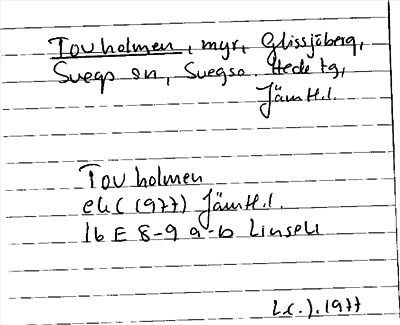 Tovholmen, myr, Glissjöberg,
Svegs sn, Svegs o. Hede tg,
Jämtl.l.
Tovholmen
ek (1977) Jämtl.l.
16 E 8-9 a-b Linsell
1977